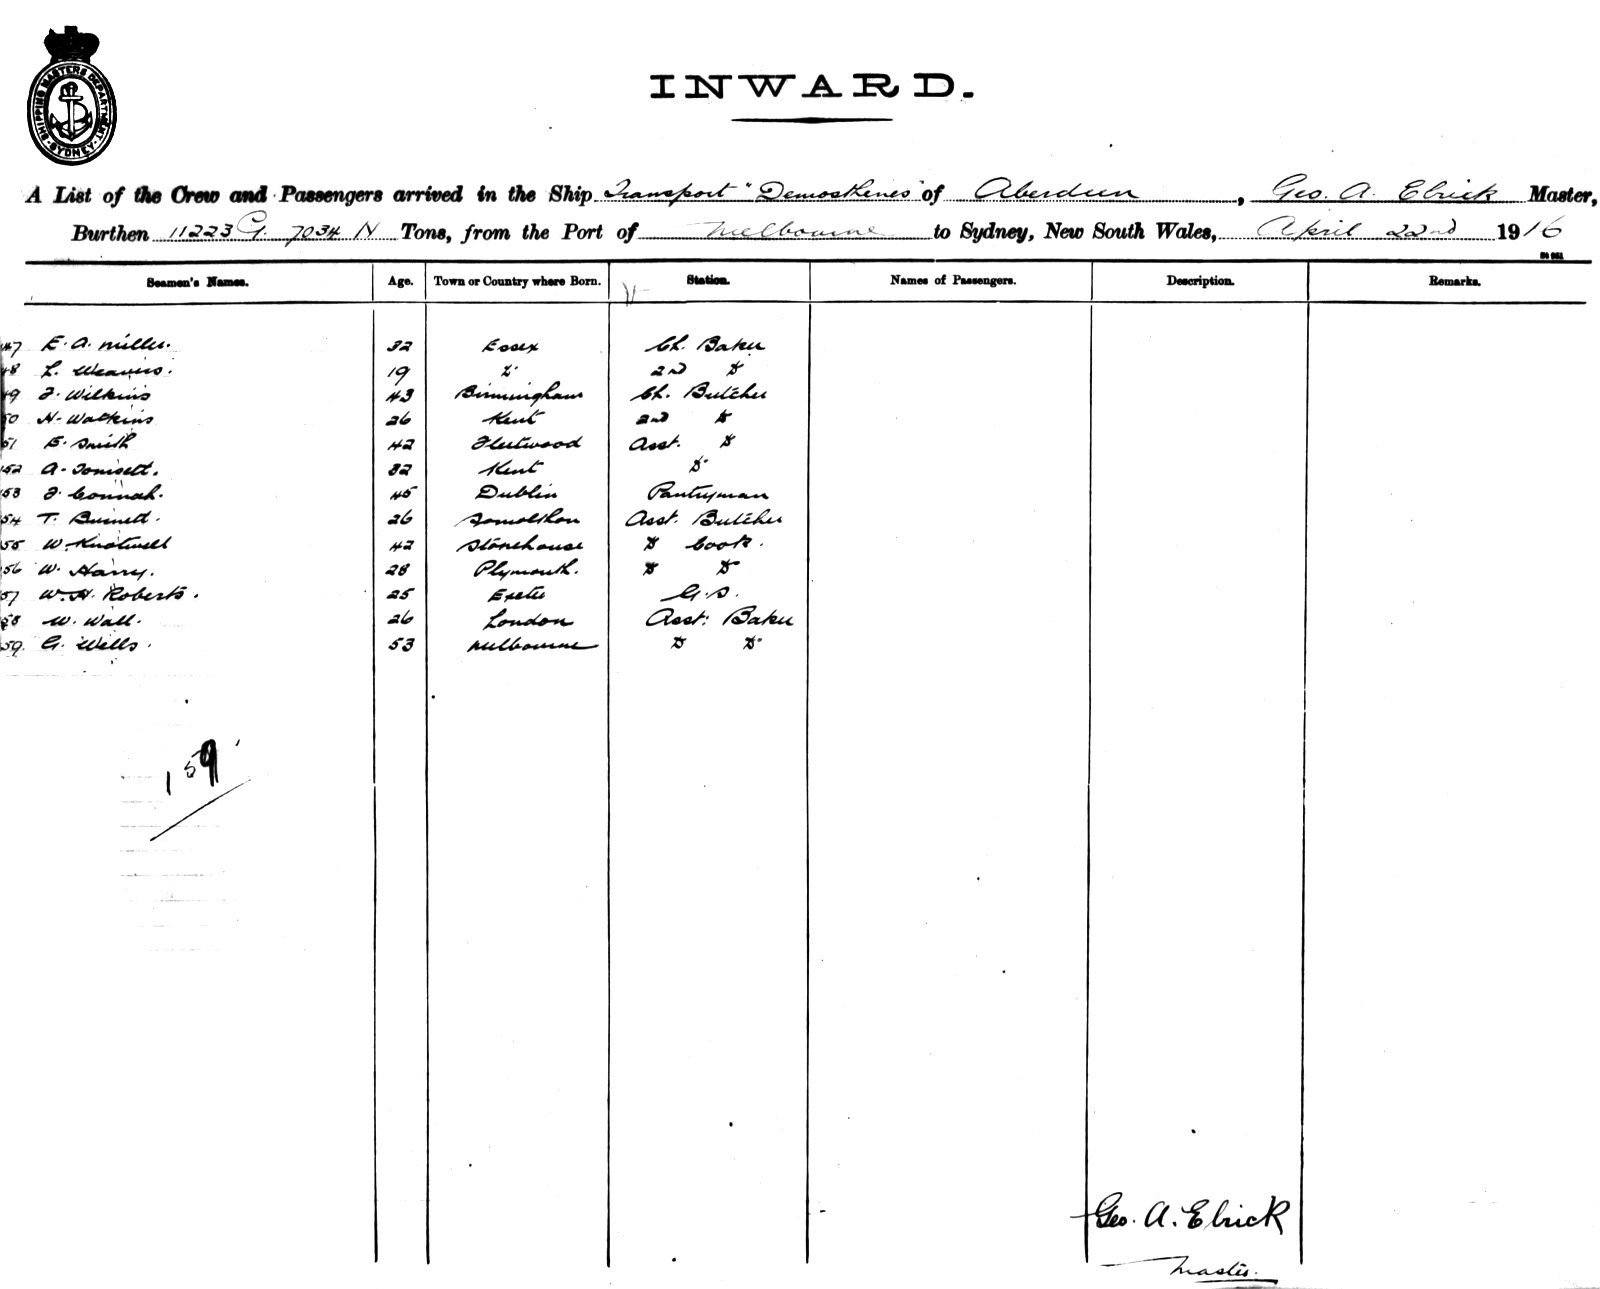 SHIPPING MASTERS DEPARTMENT SYDNEY
INWARD.
A List of the Crew and Passengers arrived in the Ship Transport "Demosthenes" of Aberdeen, Geo. A. Elrick Master,
Burthen 11223 G. 7034 N Tons, from the Port of Melbourne to Sydney, New South Wales, April 22nd 1916
Seamen's Names. Age. Town or Country where Born. Station. Names of Passengers. Description. Remarks.
147 E. A. Miller. 32 Essex Ch. Baker
48 L. Weavers. 19 " 2nd Do
49 F. Wilkins 43 Birmingham Ch. Butcher
50 H. Watkins 26 Kent 2nd Do
51 E. Smith 42 Fleetwood Asst. Do
152 A. Tomsett. 32 Kent Do
53 F. Connah. 45 Dublin Pantryman
54 T. Burnett. 26 Asst. Butcher
55 W. Knotwell 42 Stonehouse Do Cook.
156 W. Harry. 28 Plymouth. Do Do
57 W. H. Roberts. 25 Exeter G.S.
58 W. Wall. 26 London Asst. Baker
59. G. Wells. 53 Melbourne Do Do
159
Geo. A. Elrick
Master.